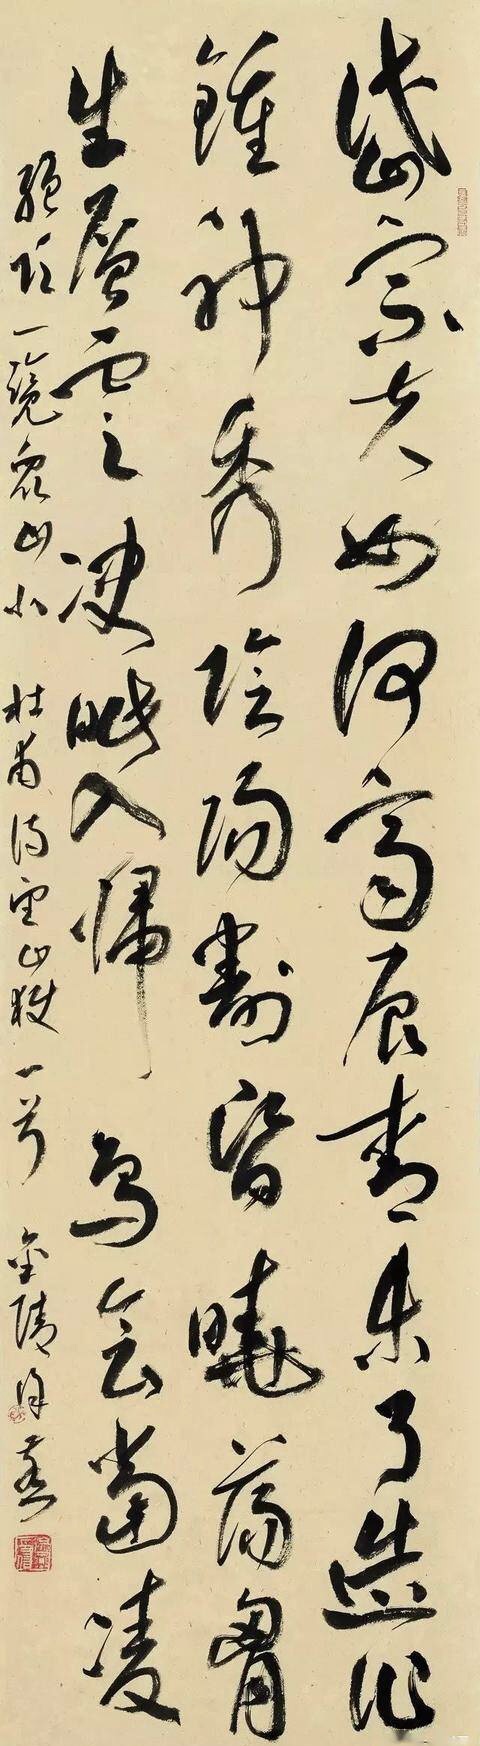 岱宗夫如何齊魯青未了造化
鍾神秀陰陽割昏曉蕩胷
生層雲決眥入歸鳥會當凌
絕頂一覽眾山小 杜甫詩望嶽一首 金陵徐